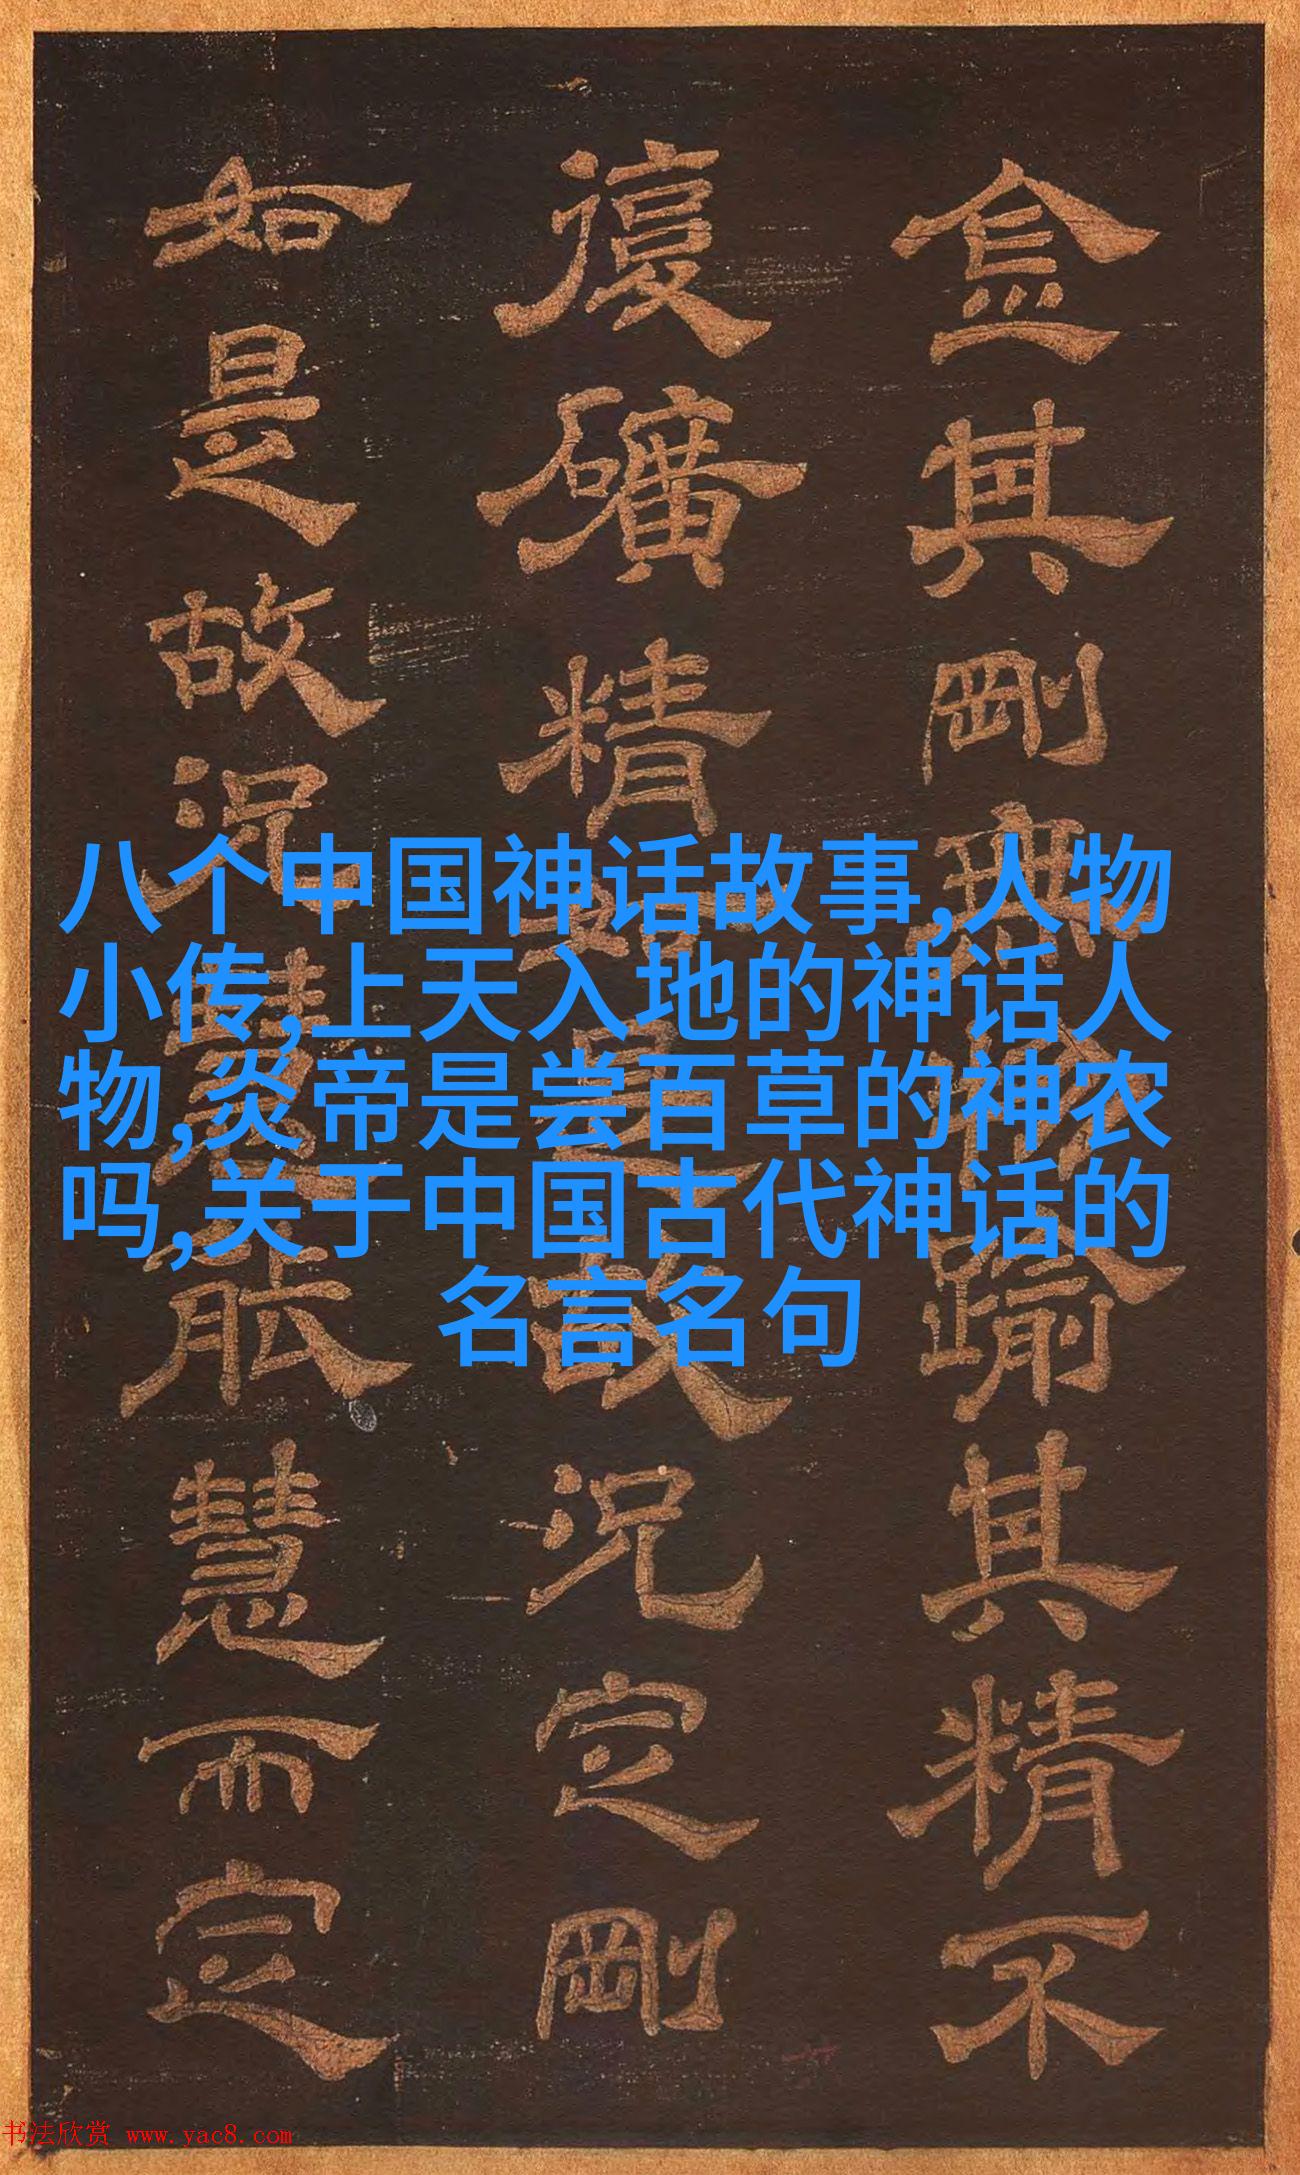 八个中国神话故事,人物
小传,上天入地的神话人
物,炎帝是尝百草的神农
吗,关于中国古代神话的
名言名句
其剛無踰其精不
復礦精如是故況定剛
如是故況慧能慧而定
书法欣赏 www.yac8.com